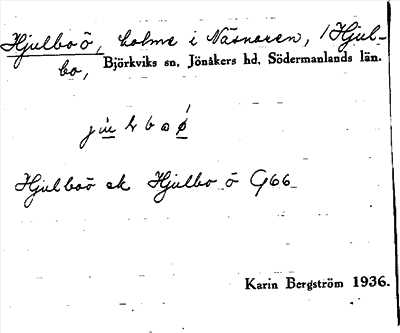 Hjulboö, holme i Näsnaren, / Hjul-
bo, Björkviks sn, Jönåkers hd, Södermanlands län.
Hjulboö ek Hjulbo ö G66
Karin Bergström 1936.